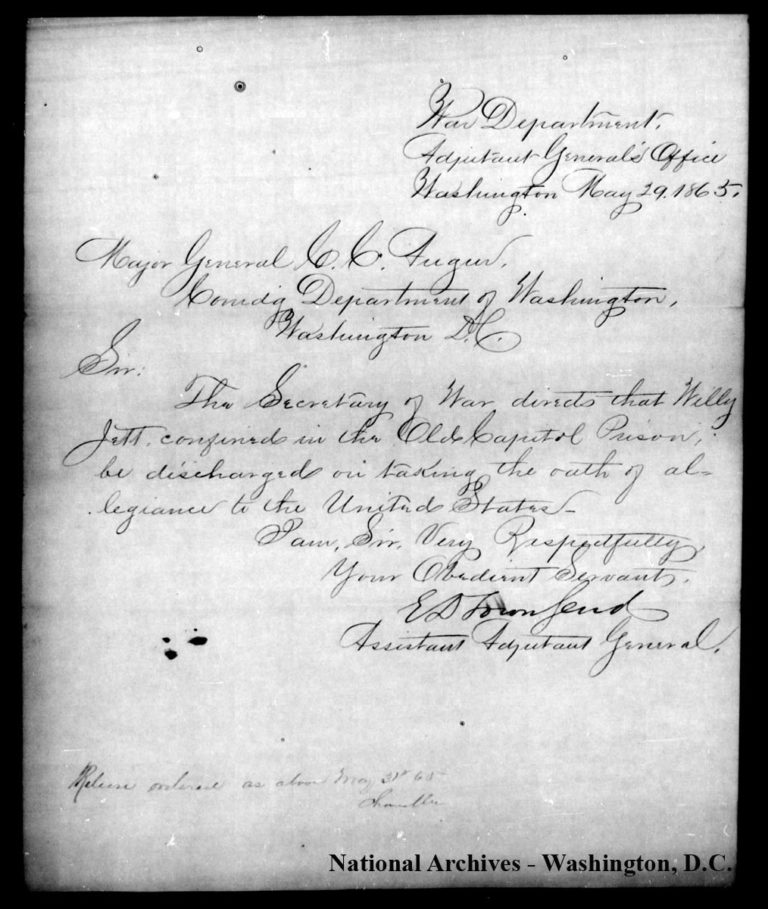 War Department,
Adjutant General's Office
Washington May 29. 1865.
Major General C. C. Augur.
Comdg Department of Washington,
Washington D.C.
Sir:
The Secretary of War directs that Willy
Jett. confined in the Old Capitol Prison,
be discharged on taking the oath of al-
legiance to the United States-
I am, Sir, Very Respectfully,
Your Obedient Servant.
E D Townsend
Assistant Adjutant General.
Release ordered as above May 31st 65
National Archives - Washington, D.C.